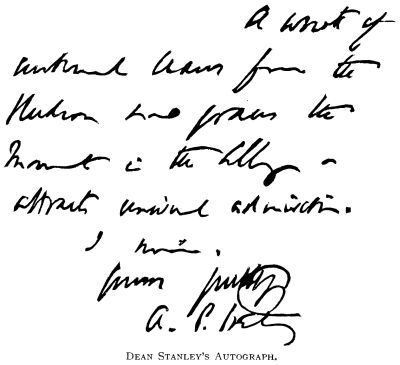 A wreath of
autumnal leaves from the
Hudson now graces the
Monument in the Abbey &
attracts universal admiration.
I remain.
yours
A. P. Stanley
DEAN STANLEY'S AUTOGRAPH.